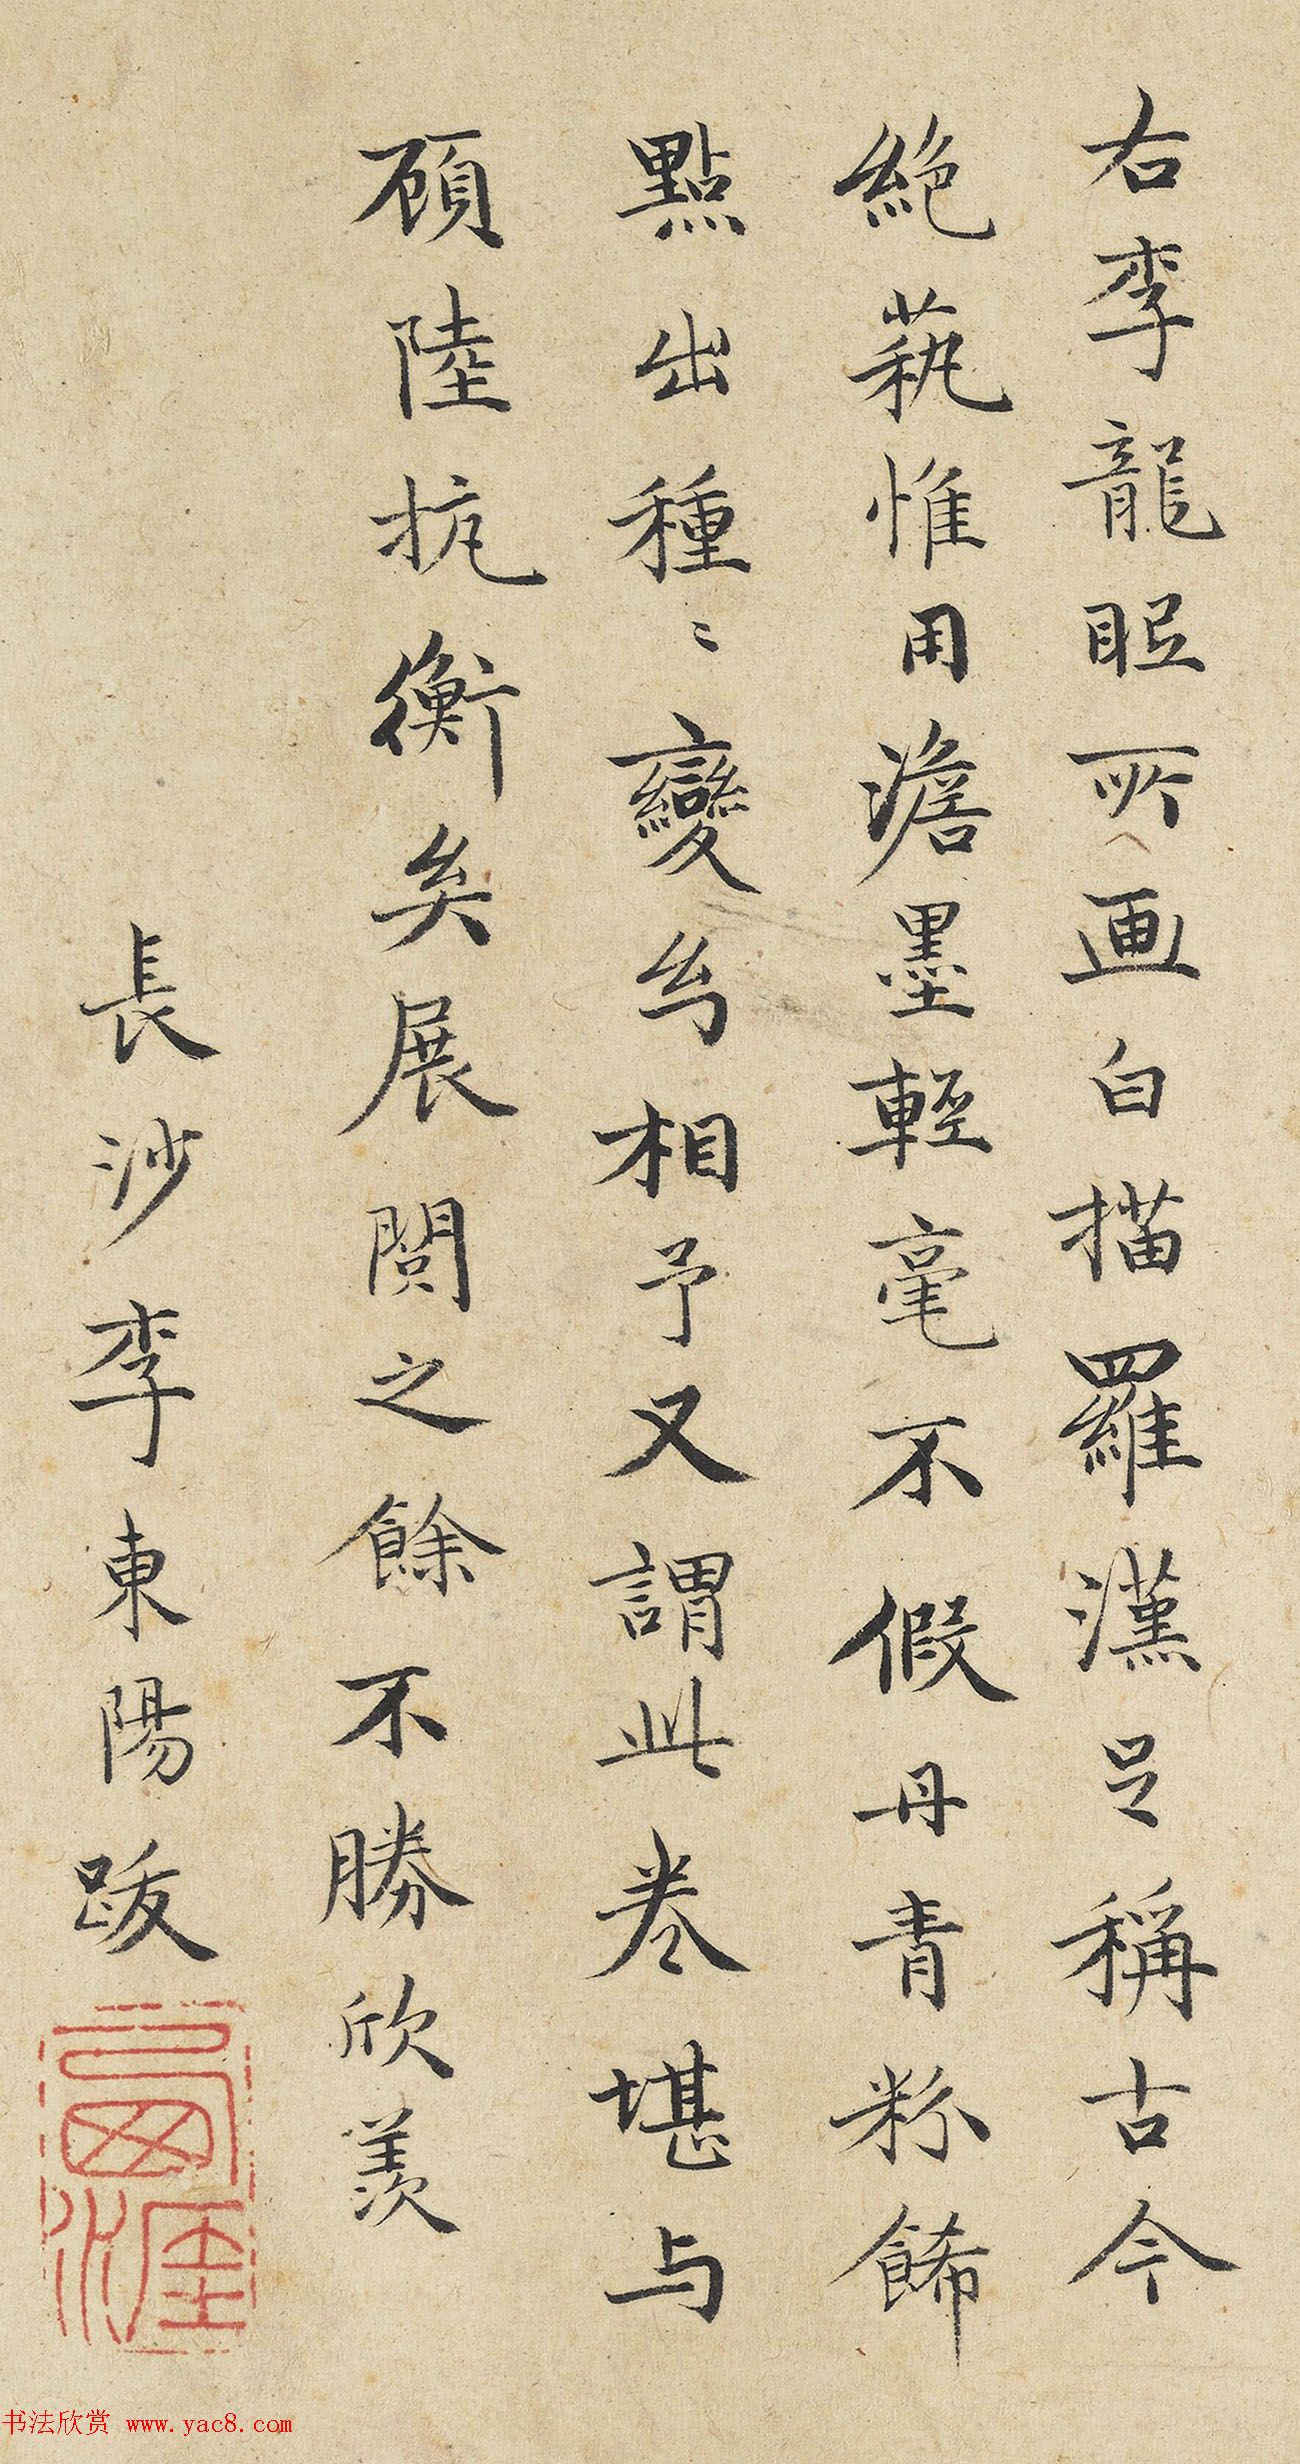 右李龍眠所画白描羅漢足稱古今
絶蓺惟用澹墨輕毫不假丹青粉飾
點出種〻變幻相予又謂此卷堪与
顧陸抗衡矣展閱之餘不勝欣羨
長沙李東陽跋
西涯
书法欣赏 www.yac8.com